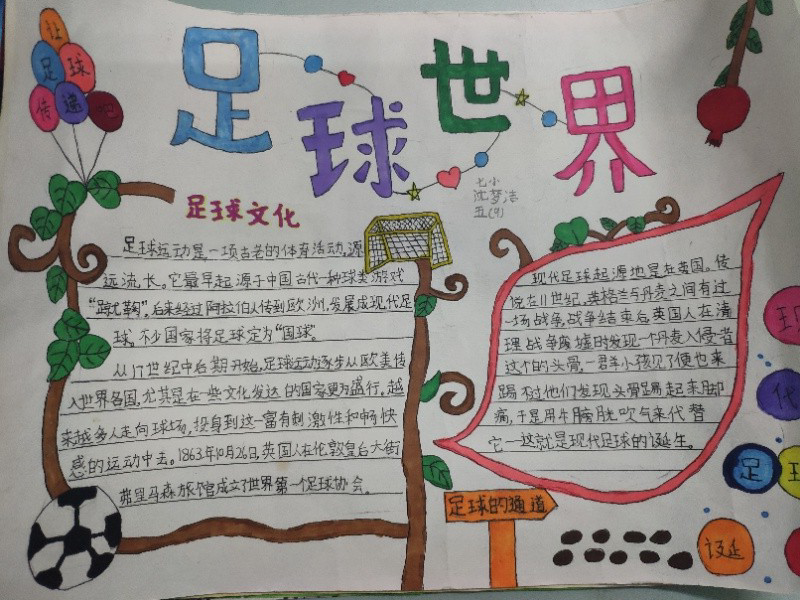 足球世界
让
足球
传递吧
七小
沈梦洁
五(9)
足球文化
足球运动是一项古老的体育活动,源
远流长。它最早起源于中国古代一种球类游戏
“蹴鞠”,后来经过阿拉伯人传到欧洲,发展成现代足
球,不少国家将足球定为“国球”。
从17世纪中后期开始,足球运动逐步从欧美传
入世界各国,尤其是在一些文化发达的国家更为盛行。越
来越多人走向球场,投身到这一富有刺激性和畅快
感的运动中去。1863年10月26日,英国人在伦敦皇后大街
弗里马森旅馆成立了世界第一个足球协会。
现代足球起源地是在英国。传
说在11世纪,英格兰与丹麦之间有过
一场战争,战争结束后英国人在清
理战争废墟时发现一个丹麦入侵者
这个的头骨,一群小孩见了便也来
踢不过他们发现头骨踢起来脚
痛,于是用牛膀胱吹气来代替
它一这就是现代足球的诞生。
足球的通道
代
足
诞